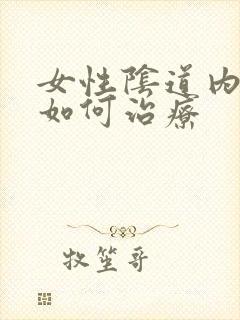 女性陰道内
如何治療
牧笙哥